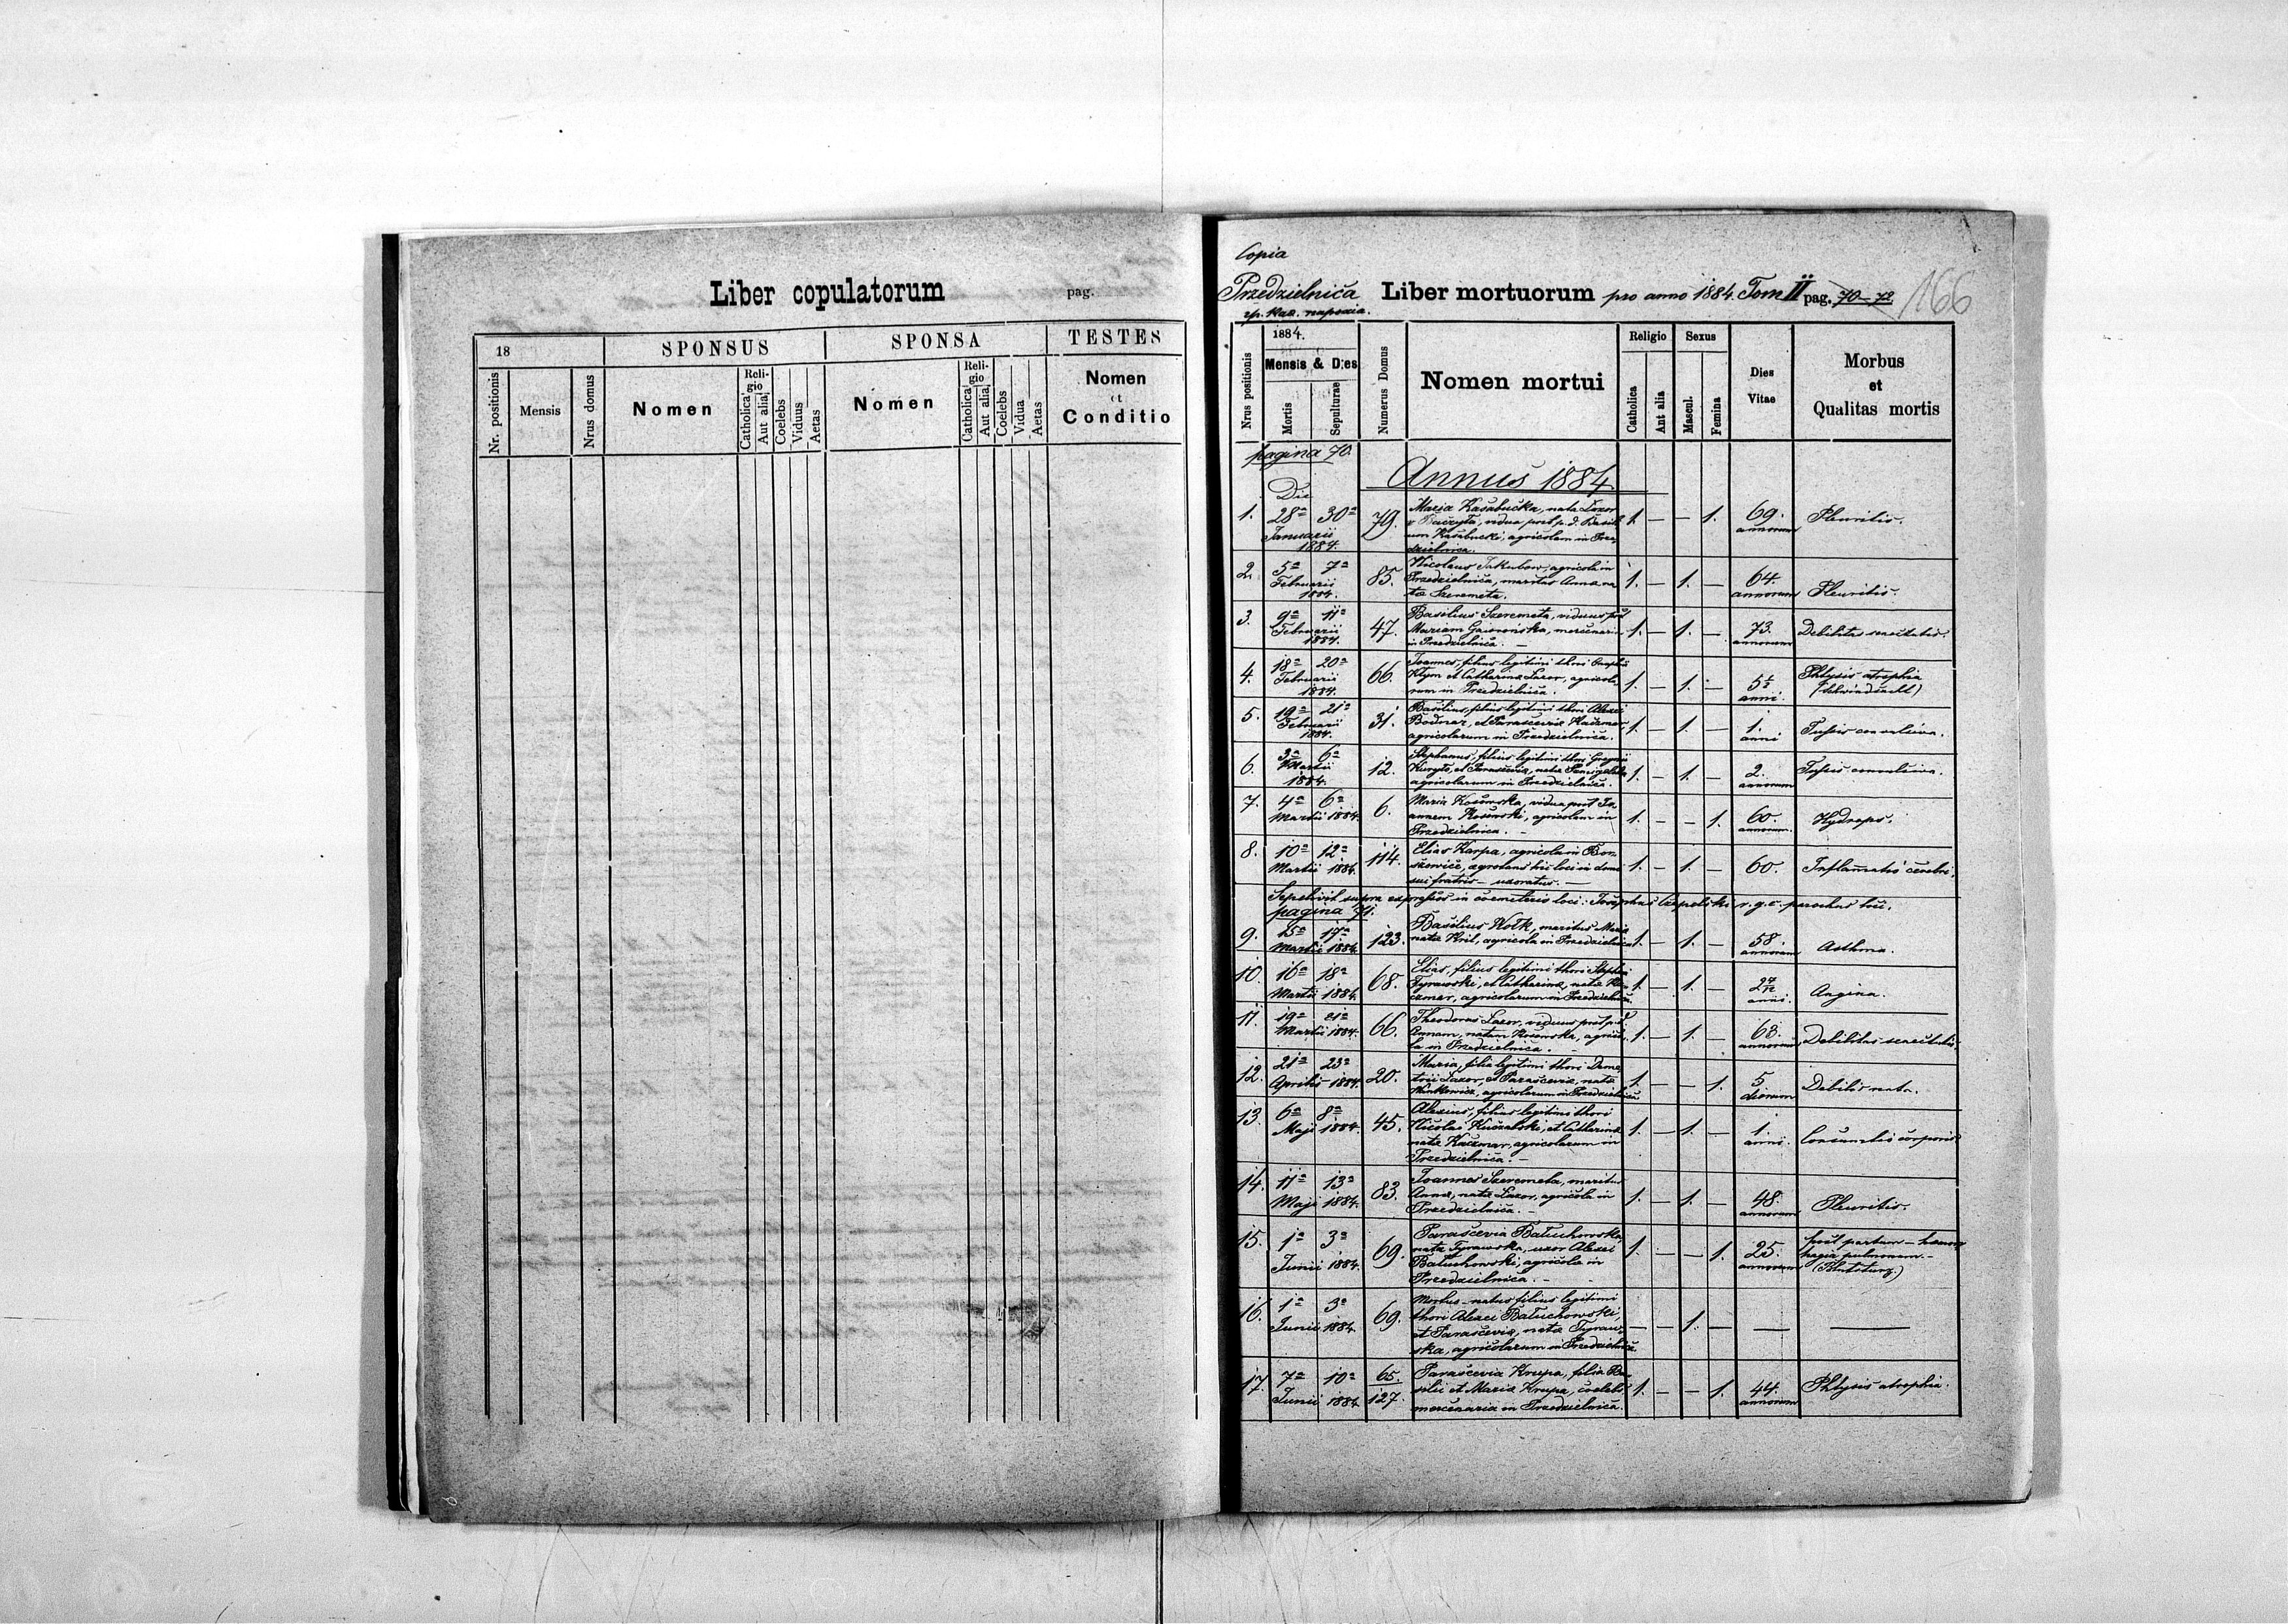 Liber copulatorum pag.
18
SPONSUS
SPONSA
TESTES
Nr. positionis
Mensis
Nrus domus
Nomen
Religio
Catholica
Aut alia
Coelebs
Viduus
Aetas
Nomen
Religio
Catholica
Aut alia
Coelebs
Vidua
Aetas
Nomen
et
Conditio
Copia
Przedzielnica Liber mortuorum pro anno 1884. Tom II pag. 70-72 166
Nrus positionis
1884.
Mensis & Dies
Mortis
Sepulturae
Numerus Domus
Nomen mortui
Religio
Catholica
Aut alia
Sexus
Mascul.
Femina
Dies
Vitae
Morbus
et
Qualitas mortis
pagina 70.
Annus 1884
Die
1. 28a 30a Januarii 1884. 79. Maria Kasabucka, nata Lazor
vidua post p. d. Basilium Kasabucki, agricolam in Przedzielnica. 1. — — 1. 69. annorum Pleuritis.
2. 5a 7a Februarii 1884. 85. Nicolaus Jakubow, agricola in
Przedzielnica, maritus Annae natae Szeremeta. 1. — 1. — 64. annorum Pleuritis.
3. 9a 11a Februarii 1884. 47. Basilius Szeremeta, viduus post
Mariam in Przedzielnica. — 1. — 1. — 73. annorum Debilitas senectutis.
4. 18a 20a Februarii 1884. 66. Joannes, filius legitimi thori Onuphrii
Klym et Catharinae Lazor, agricolarum in Przedzielnica. 1. — 1. — anni. Phtysis atrophia
5. 19a 21a Februarii 1884. 31. Basilius, filius legitimi thori Alexei
Bodnar, et Parascevia Kaczmar,
agricolarum in Przedzielnica. 1. — 1. — 1. anni Tussis convulsiva.
6. 3a 6a Martii 1884. 12. Stephanus, filius legitimi thori Gregorii
et Parascevia, nata
agricolarum in Przedzielnica. 1. — 1. — 2. annorum Tussis convulsiva.
7. 4a 6a Martii 1884. 6. Maria Kosowska, vidua post Joannem
Kosowski, agricolam in
Przedzielnica. — 1. — — 1. 60. annorum. Hydrops.
8. 10a 12a Martii 1884. 114. Elias Karpa, agricola in
agrotans hic loci in domo
sui fratris — uxoratus. — 1. — 1. — 60. Inflamatio cerebri.
Sepelivit supra expressos in coemeterio loci: Josephus r. g. c. parochus loci.
pagina 71.
9. 15a 17a Martii 1884. 123. Basilius Wolk, maritus Mariae
nata Kril, agricola in Przedzielnica 1. — 1. — 58. annorum Asthma.
10. 16a 18a Martii 1884. 68. Elias, filius legitimi thori Stephani
Tyrawski, et Catharina, nata Kaczmar, agricolarum in Przedzielnica. 1. — 1. — anni. Angina.
11. 19a 21a Martii 1884. 66. Theodorus Lazor, viduus post p. d.
Annam, natam Kosowska, agricola in Przedzielnica. — 1. — 1. — 63. annorum Debilitas senectutis.
12. 21a 23a Aprilis 1884. 20. Maria, filia legitimi thori Demetrii
Lazor, et Parascevia, nata
agricolarum in Przedzielnica 1. — — 1. 5 dierum Debilis nata.
13. 6a 8a Maji 1884. 45. Alexius, filius legitimi thori
Nicolai et Catharina
nata Kaczmar, agricolarum in
Przedzielnica. — 1. — 1. — 1. anni. corporis
14. 11a 13a Maji 1884. 83. Joannes Szeremeta, maritus
Anna, nata Lazor, agricola in
Przedzielnica. — 1. — 1. — 48. annorum Pleuritis.
15. 1a 3a Junii 1884. 69. Parascevia Batuchowska,
nata Tyrawska, uxor Alexei
Batuchowski, agricola in
Przedzielnica. — 1. — — 1. 25. annorum post partum — haemorrhagia pulmonum. —
16. 1a 3a Junii 1884. 69. Mortus-natus filius legitimi
thori Alexei Batuchowski,
et Parascevia, nata Tyrawska, agricolarum in Przedzielnica. — — 1. — — —
17. 7a 10a Junii 1884 65. 127. Parascevia Krupa, filia Basilii et Maria Krupa, coelebs
mercenaria in Przedzielnica. 1. — — 1. 44. annorum Phtysis atrophia.